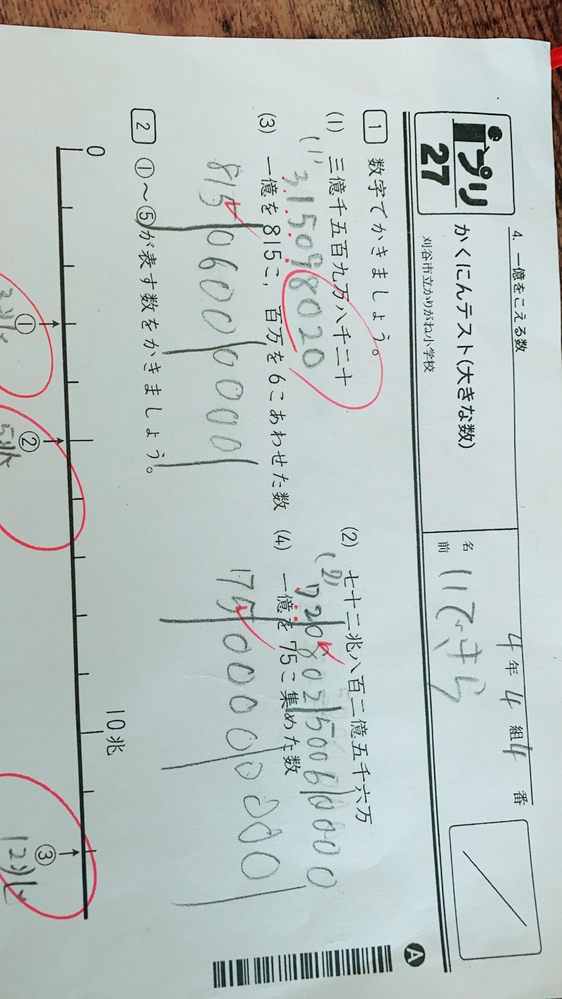 4. 一億をこえる数
4年 4組 4番
iプリ
27
かくにんテスト(大きな数)
刈谷市立かりがね小学校
名前
A
1 数字でかきましょう。
(1) 三億千五百九万八千二十
(1) 315098020
(2) 七十二兆八百二億五千六万
(2)
(3) 一億を815こ，百万を6こあわせた数
815 0600 0000
(4) 一億を75こ集めた数
2 ①～⑤が表す数をかきましょう。
0
10兆
① ② ③
12兆